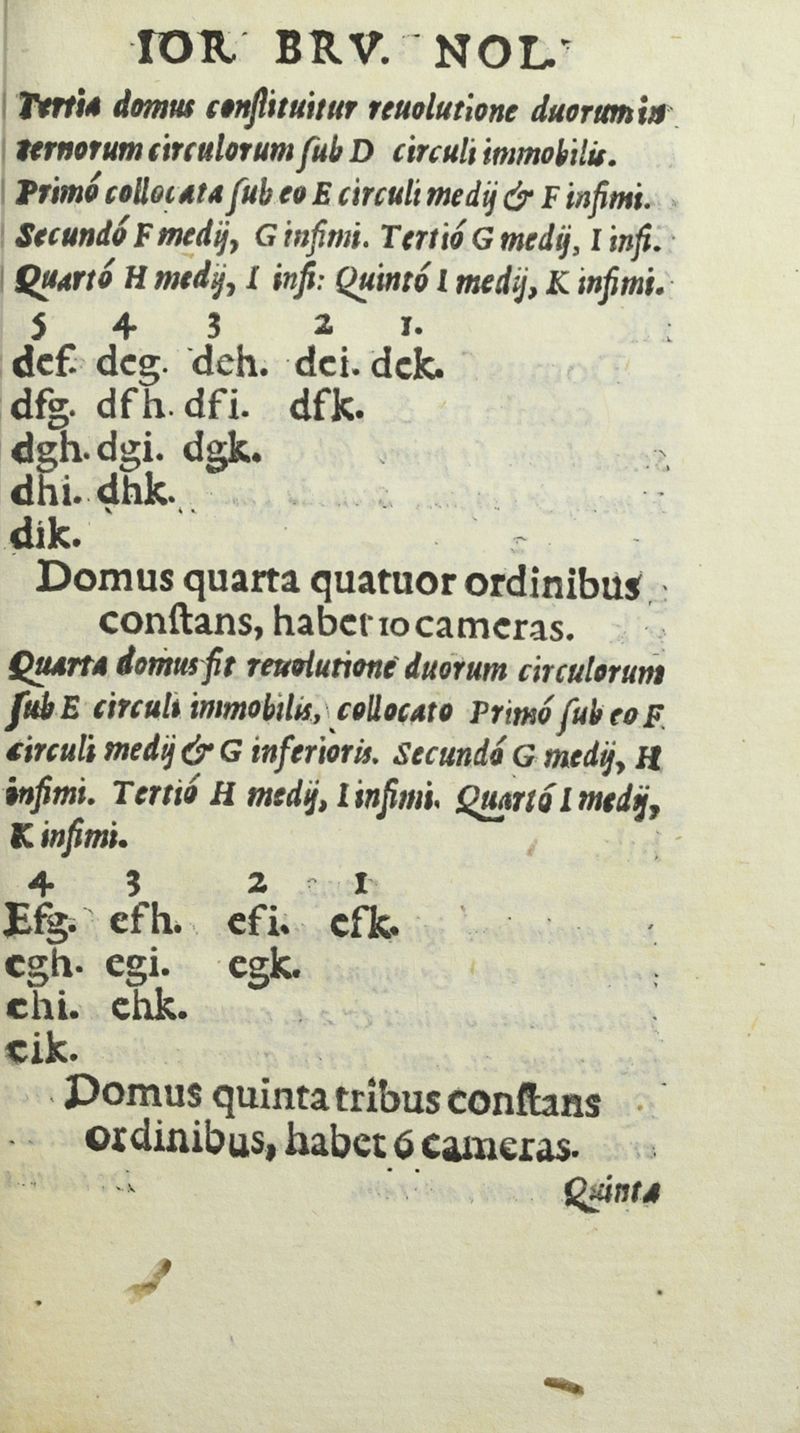 IOR. BRV. NOL.
Tertia domus conſtituitur reuolutione duorum in
ternorum circulorum ſub D circuli immobilis.
Primó collocata ſub eo E circuli medij & F infimi.
Secundó F medij, G infimi. Tertió G medij, I infi.
Quartó H medij, I infi: Quintó I medij, K infimi.
5 4 3 2 1.
def. deg. deh. dei. dek.
dfg. dfh. dfi. dfk.
dgh. dgi. dgk.
dhi. dhk.
dik.
Domus quarta quatuor ordinibus
conſtans, habet 10 cameras.
Quarta domus fit reuolutione duorum circulorum
ſub E circuli immobilis, collocato Primó ſub eo F
circuli medij & G inferioris. Secundó G medij, H
infimi. Tertió H medij, I infimi. Quartó I medij,
K infimi.
4 3 2 1
Efg. efh. efi. efk.
egh. egi. egk.
ehi. ehk.
eik.
Domus quinta tribus conſtans
ordinibus, habet 6 cameras.
Quinta